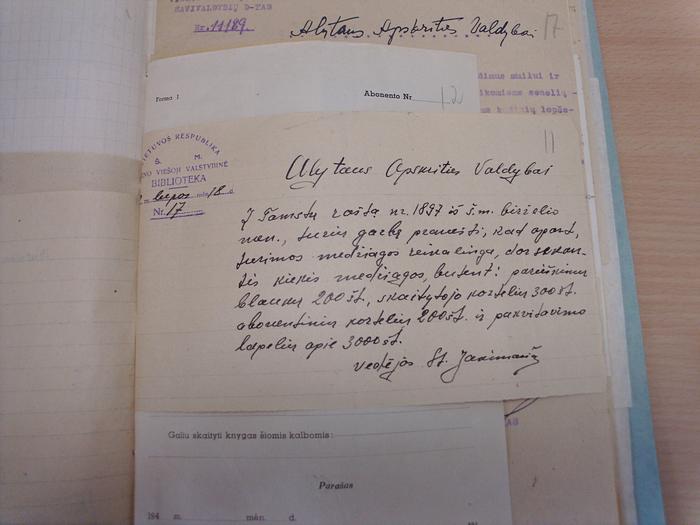 SAVIVALDYBIŲ D-TAS
Nr. 11189.
Alytaus Apskrities Valdybai
17
Forma 1
Abonento Nr
11
LIETUVOS RESPUBLIKA
Š. M.
VIEŠOJI VALSTYBINĖ
BIBLIOTEKA
m. liepos mėn. 18 d.
Nr. 17
Alytaus Apskrities Valdybai
Į Tamstų raštą nr. 1897 iš š.m. birželio
mėn., turiu garbę pranešti, kad apart,
turimos medžiagos reikalinga, dar sekan-
tis kiekis medžiagos, būtent: pareiškimų
blankų 200 št., skaitytojo kortelių 300 št.
abonentinių kortelių 200 št. ir pakvitavimo
lapelių apie 3000 št.
vedėjas St.
Galiu skaityti knygas šiomis kalbomis:
Parašas
194 m. mėn. d.